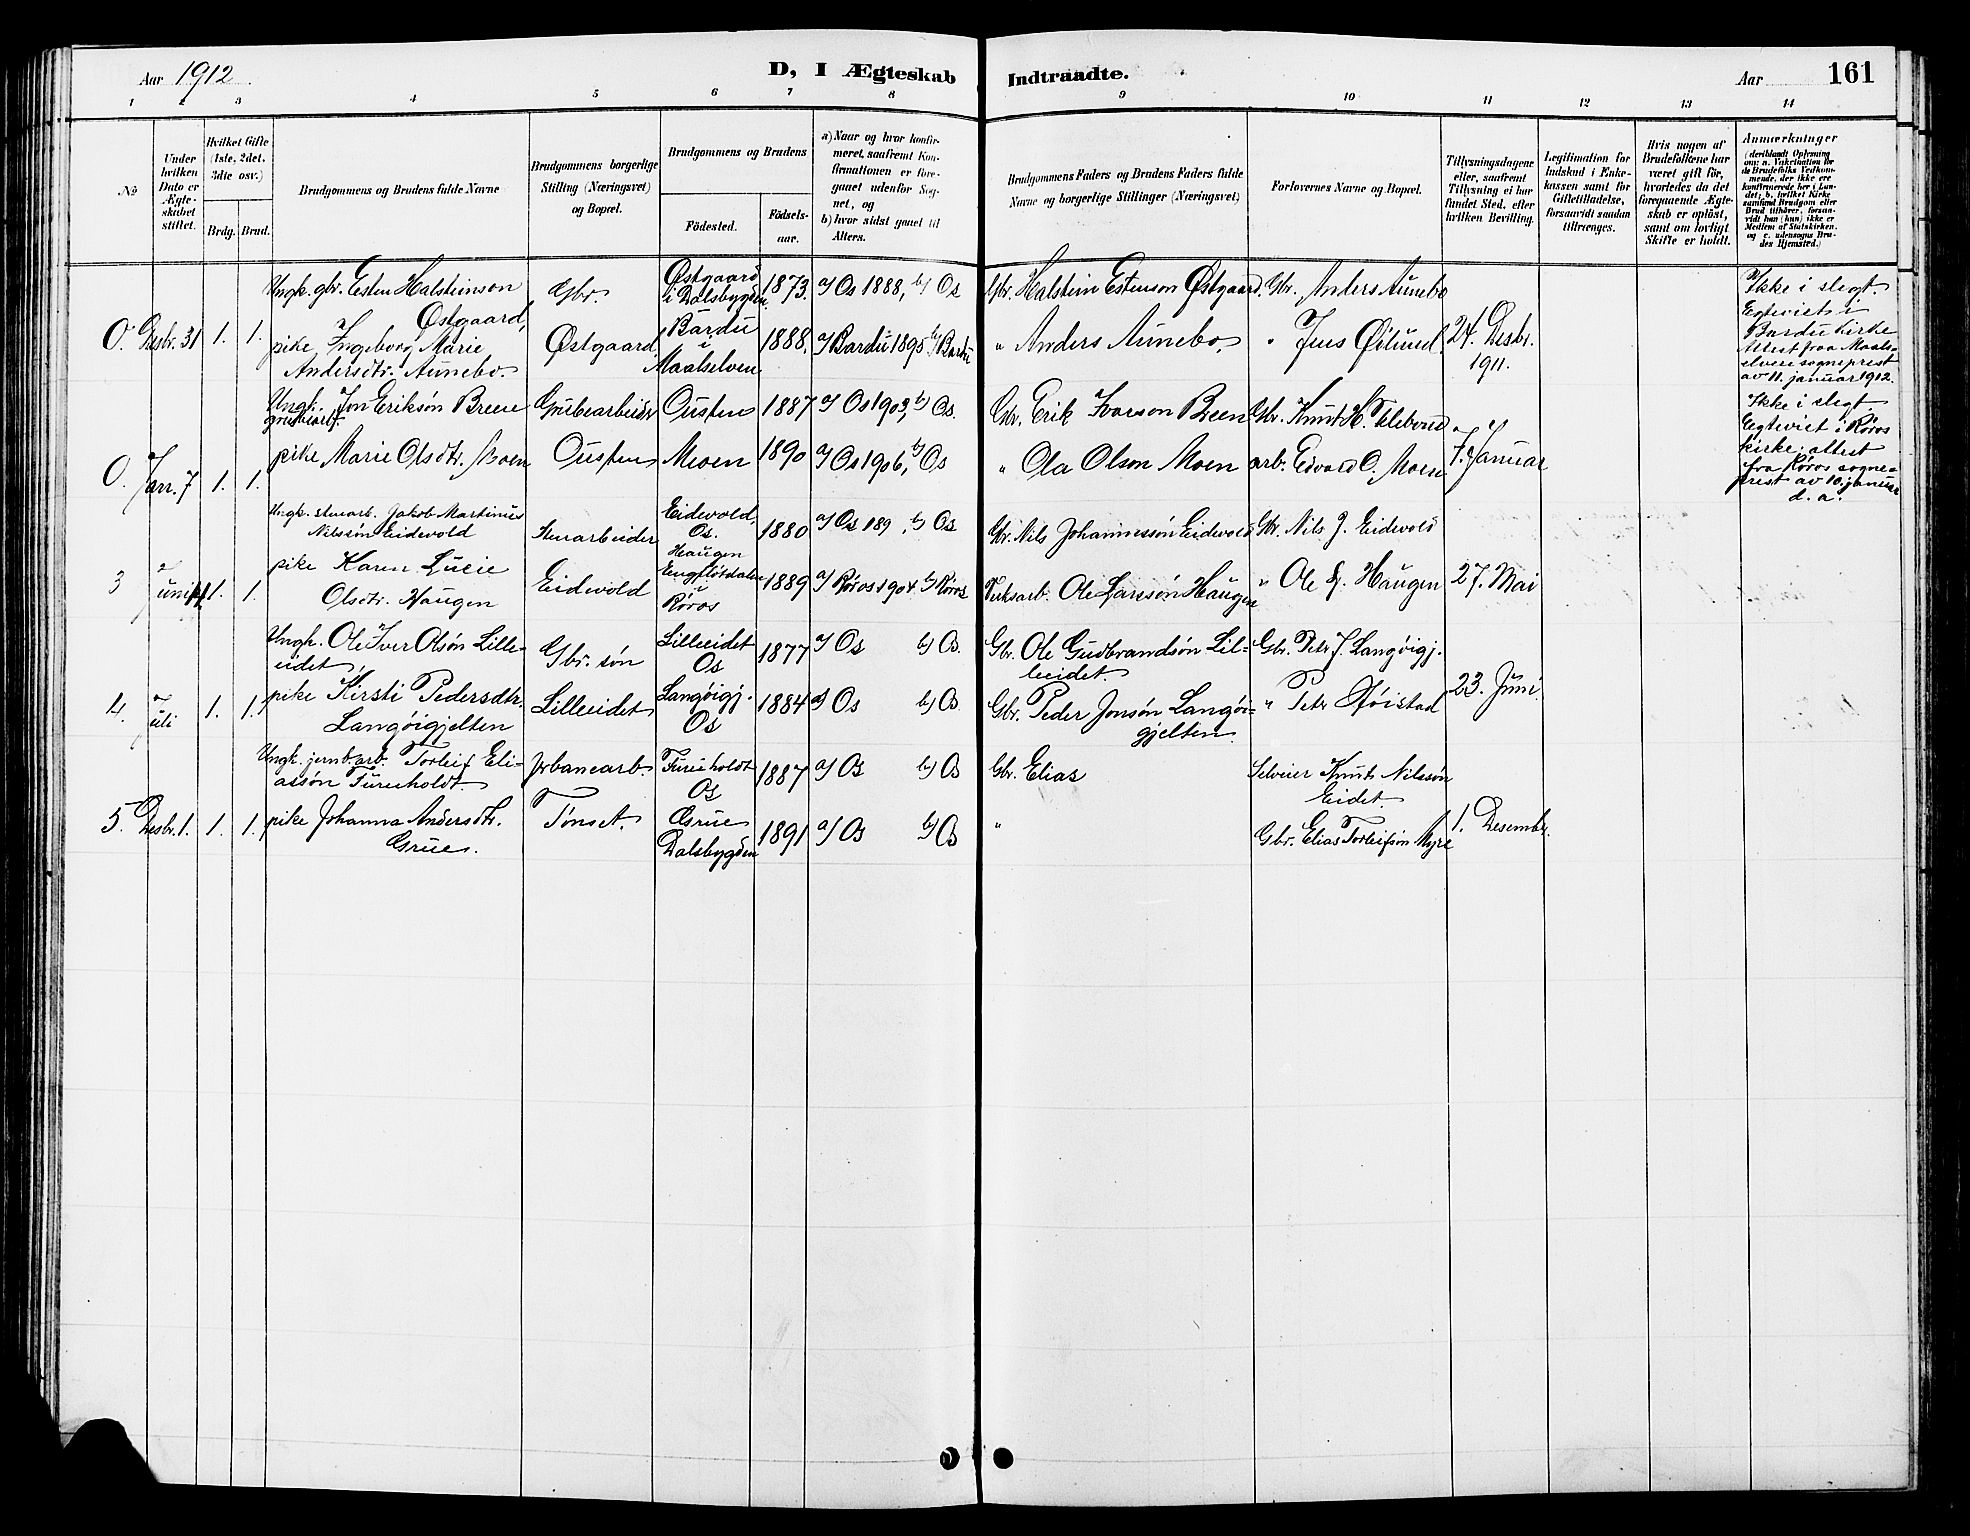 Aar 1912
D, I Ægteskab Indtraadte.
Aar
161
1 2 3 4 5 6 7 8 9 10 11 12 13 14
No
Under
hvilken
Dato er
Ægte-
skabet
stiftet.
Hvilket Gifte
(1ste, 2det,
3die osv.)
Brdg. Brud.
Brudgommens og Brudens fulde Navne
Brudgommens borgerlige
Stilling (Næringsvei)
og Bopæl.
Brudgommens og Brudens
Fødested.
Fødsels-
aar.
a) Naar og hvor konfir-
meret, saafremt Kon-
firmationen er fore-
gaaet udenfor Sog-
net, og
b) hvor sidst gaaet til
Alters.
Brudgommens Faders og Brudens Faders fulde
Navne og borgerlige Stillinger (Næringsvei)
Forlovernes Navne og Bopæl.
Tillysningsdagene
eller, saafremt
Tillysning ei har
fundet Sted, efter
hvilken Bevilling.
Legitimation for
Indskud i Enke-
kassen samt for
Giftetilladelse,
forsaavidt saadan
tiltrænges.
Hvis nogen af
Brudefolkene har
været gift før,
hvorledes da det
foregaaende Ægte-
skab er opløst,
samt om lovligt
Skifte er holdt.
Anmærkninger
(deriblandt Oplysning
om: a. Vakcination for
de Brudefolks Vedkom-
mende, der ikke ere
konfirmerede her i Lan-
det; b. hvilket Kirke-
samfund Brudgom eller
Brud tilhører, forsaa-
vidt han (hun) ikke er
Medlem af Statskirken,
og c. udensogns Bru-
des Hjemsted.)
0. Desbr. 31 1. 1.
Ungk. gbr. Esten Halsteinson
Østgaard,
pike Ingeborg Marie
Andersdtr. Aunebo.
Gbr.
Østgaard.
Østgaard
i Dalsbygden.
Bardu
i
Maalselven
1873.
1888.
a) Os 1888, b) Os
a) Bardu 1895 b) Bardu
Gbr. Halstein Estenson Østgaard.
" Anders Aunebo.
Gbr. Anders Aunebo
" Jens Øilund.
24. Desbr.
1911.
Ikke i slegt.
Egteviet i
Bardu kirke
Attest fra Maals-
elvens sogneprest
av 11. januar 1912.
0. Jan. 7 1. 1.
Ungk. Jon Erikson Breen
grubearb.
pike Marie Olsdtr. Moen
Grubearbeider
Ousten
Ousten
Moen
1887
1890
a) Os 1903, b) Os.
a) Os 1906, b) Os
Gbr. Erik Iverson Breen
" Ola Olson Moen
Gbr. Knut H. Telebond
arb. Edvard O. Moen
7. Januar
Ikke i slegt.
Egteviet i Røros
kirke, attest
fra Røros sogne-
prest av 10. januar
d. a.
3 Juni 1. 1.
Ungk. stenarb. Jakob Martinus
Nilssøn Eidevold
pike Karen Lucie
Olsdtr. Haugen
Stenarbeider
Eidevold
Eidevold,
Os.
Haugen
Røros
1880
1889
a) Os 189 , b) Os
a) Røros 1904 b) Røros
Gbr. Nils Johannessøn Eidevold
Verksarb. Ole Larssøn Haugen
Gbr. Nils J. Eidevold
" Ole L. Haugen
27. Mai
4. Juli 1. 1.
Ungk. Ole Iver Olsøn Lille-
eidet
pike Kirsti Pedersdtr.
Langøigjelten
Gbr. søn
Lilleeidet
Lilleeidet
Os
Langøigj.
Os
1877
1884
a) Os b) Os.
a) Os b) Os
Gbr. Ole Gudbrandsøn Lil-
leeidet.
Gbr. Peder Jonsøn Langøi-
gjelten.
Gbr. Petr J. Langøigj.
" Petr Høistad
23. Juni.
5. Desbr. 1. 1. 1.
Ungk. jernb.arb. Torleif Eli-
assøn Fureholdt.
pike Johanna Andersdtr.
Grue.
Jrbanearb.
Tønset.
Fureholdt
Os
Grue
Dalsbygden
1887
1891
a) Os b) Os
a) Os b) Os
Gbr. Elias
"
Selveier Knut Nilssøn
Eidet.
Gbr. Elias Torleifsøn Myre
1. Desembr.